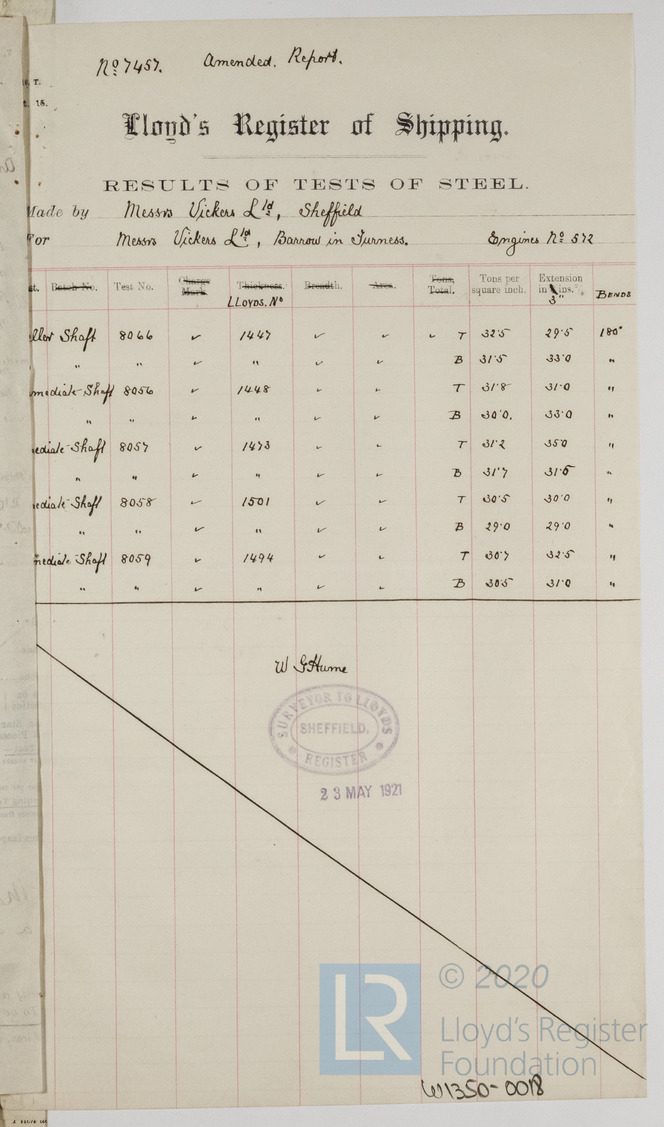 No 7457. Amended. Report.
T.
15.
Lloyd's Register of Shipping.
RESULTS OF TESTS OF STEEL.
Made by Messrs Vickers Ltd, Sheffield
For Messrs Vickers Ltd, Barrow in Furness. Engines No 572
st. Batch No. Test No. Charge Mark. Thickness. LLOYDS. No Breadth. Area. Tons, Total. Tons per square inch. Extension in ins. 3" BENDS
eller Shaft 8066 ✓ 1447 ✓ ✓ ✓ T 32.5 29.5 180°
" " ✓ " ✓ ✓ B 31.5 33.0 "
mediate Shaft 8056 ✓ 1448 ✓ ✓ T 31.8 31.0 "
" " ✓ " ✓ ✓ B 30.0. 33.0 "
mediate Shaft 8057 ✓ 1473 ✓ ✓ T 31.2 35.0 "
" " ✓ " ✓ ✓ B 31.7 31.5 "
mediate Shaft 8058 ✓ 1501 ✓ ✓ T 30.5 30.0 "
" " ✓ " ✓ ✓ B 29.0 29.0 "
mediate Shaft 8059 ✓ 1494 ✓ ✓ T 30.7 32.5 "
" " ✓ " ✓ ✓ B 30.5 31.0 "
W G Hume
SURVEYOR TO LLOYDS
SHEFFIELD.
REGISTER
23 MAY 1921
LR © 2020
Lloyd's Register
Foundation
W1350-0018